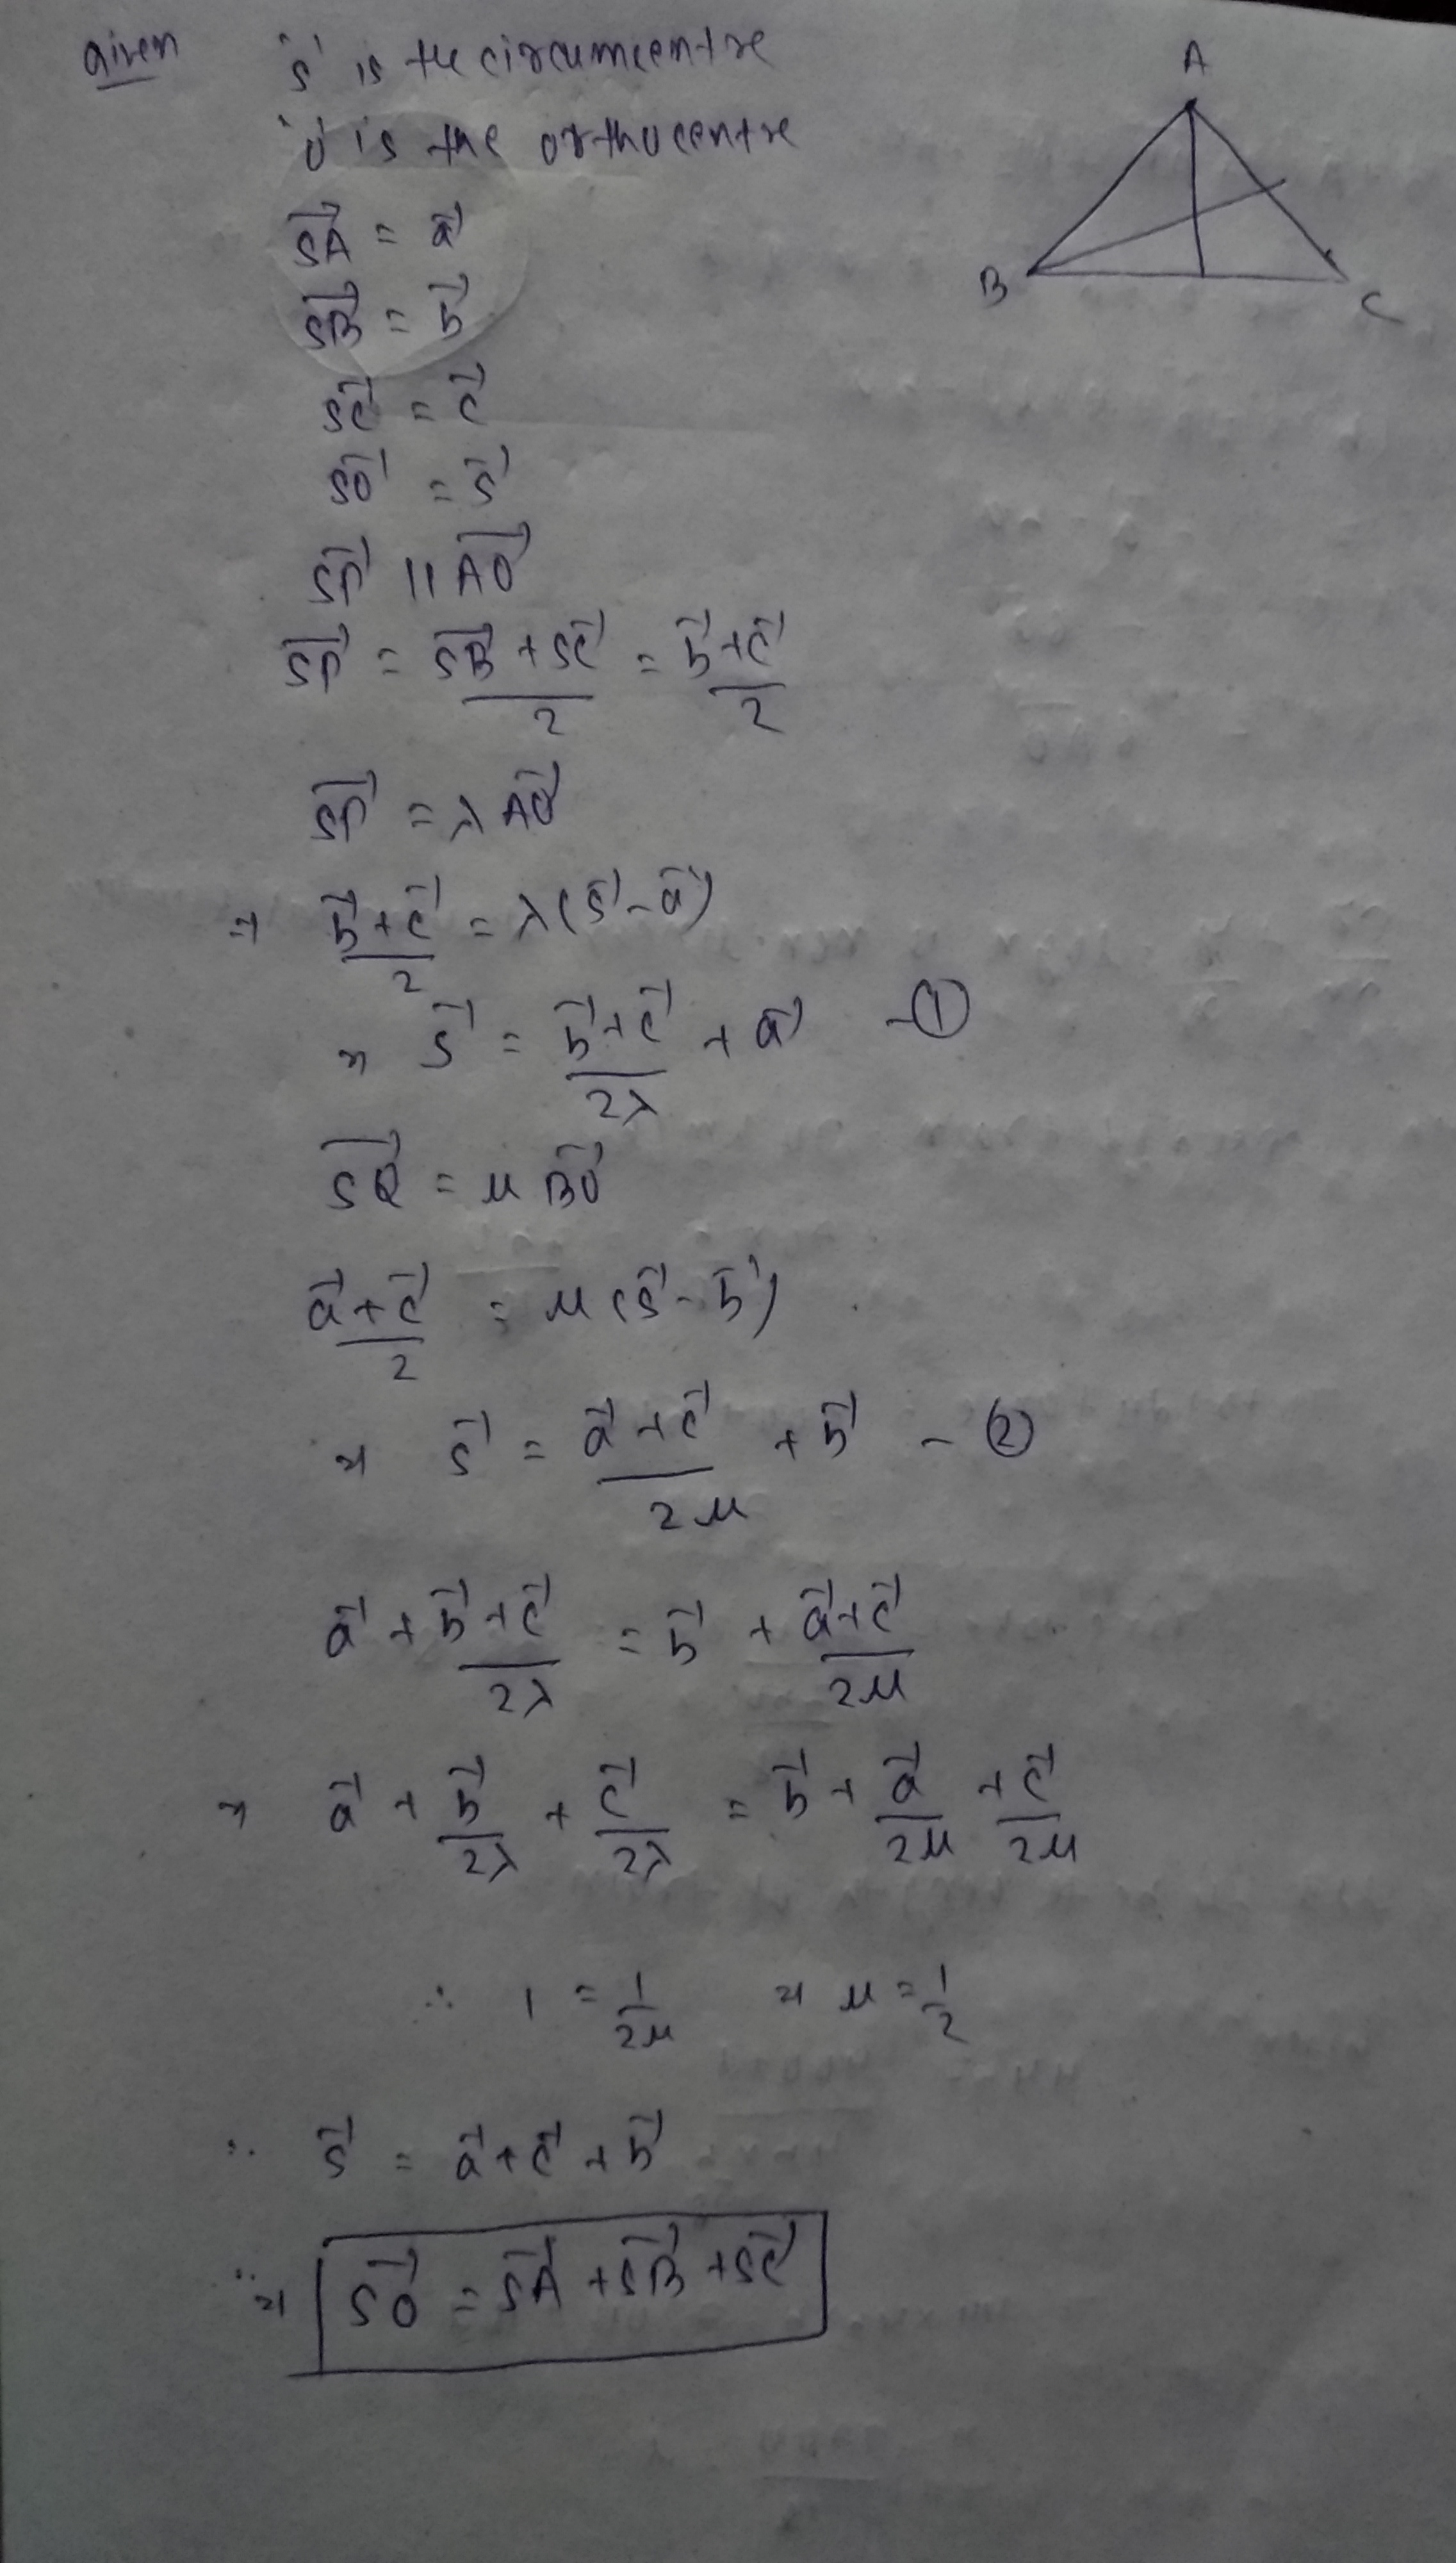 Given 's' is the circumcentre
'O' is the orthocentre
A
B
C
SA⃗ = a⃗
SB⃗ = b⃗
SC⃗ = c⃗
SO⃗ = s⃗
SP⃗ || AO⃗
SP⃗ = (SB⃗ + SC⃗)/2 = (b⃗+c⃗)/2
SP⃗ = λ AO⃗
⇒ (b⃗+c⃗)/2 = λ(s⃗ - a⃗)
⇒ s⃗ = (b⃗+c⃗)/2λ + a⃗ - ①
SQ⃗ = μ BO⃗
(a⃗+c⃗)/2 = μ(s⃗ - b⃗)
⇒ s⃗ = (a⃗+c⃗)/2μ + b⃗ - ②
a⃗ + (b⃗+c⃗)/2λ = b⃗ + (a⃗+c⃗)/2μ
⇒ a⃗ + b⃗/2λ + c⃗/2λ = b⃗ + a⃗/2μ + c⃗/2μ
∴ 1 = 1/2μ ⇒ μ = 1/2
∴ s⃗ = a⃗+c⃗+b⃗
∴⇒ SO⃗ = SA⃗ + SB⃗ + SC⃗